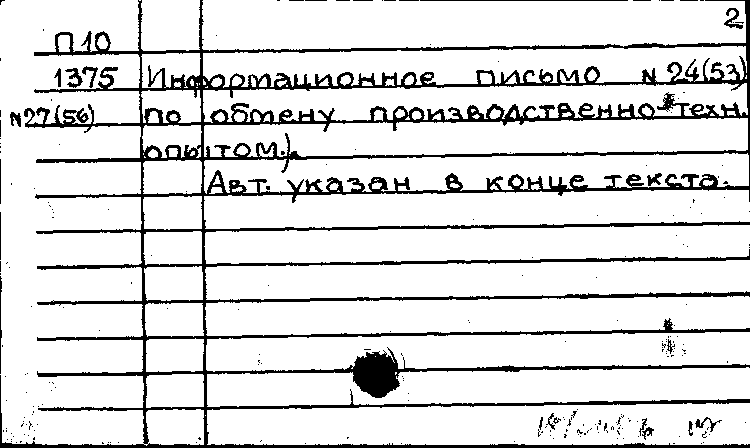 2
П10
1375 Информационное письмо N 24(53)
N27(56) по обмену производственно-техн.
опытом.).
Авт. указан в конце текста.